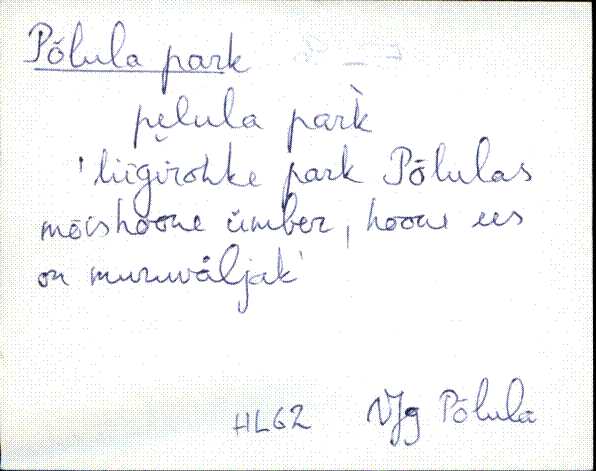 Põlula park
pe̮lula park̀
'liigirohke park Põlulas
mõishoone ümber, hoone ees
on muruväljak'
HL62 VJg Põlula